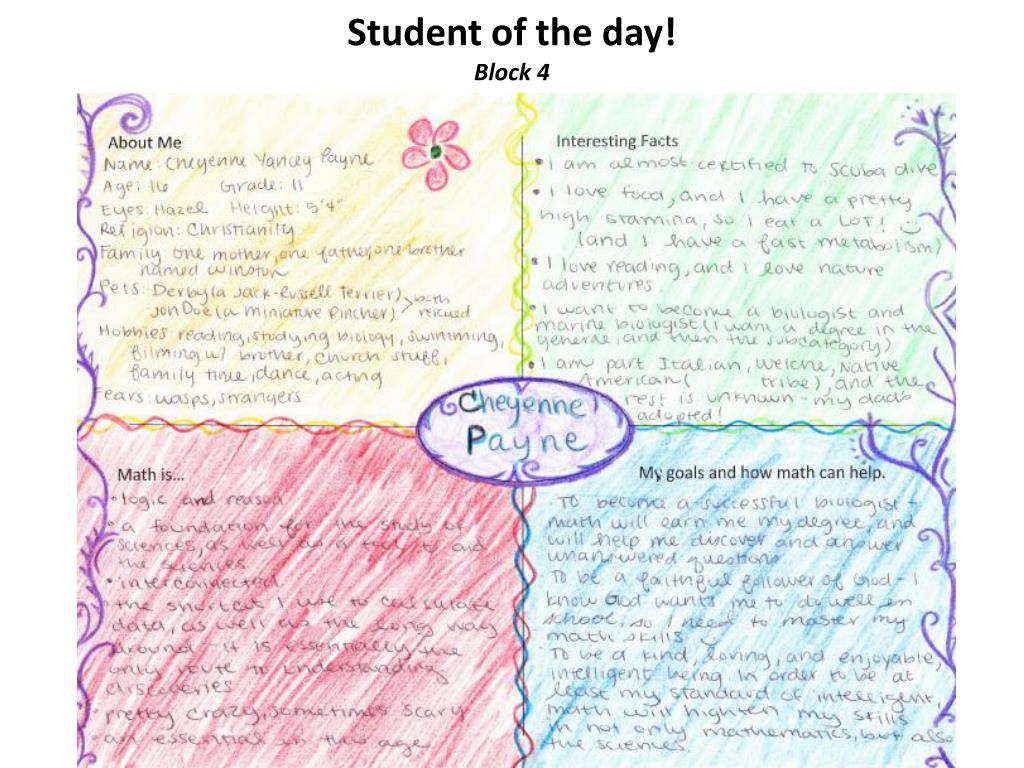 Student of the day!
Block 4
About Me
Name: Cheyenne Yancey Payne
Age: 16 Grade: 11
Eyes: Hazel Height: 5'4"
Religion: Christianity
Family: one mother, one father, one brother
named Winston
Pets: Derby (a Jack-Russell Terrier)
Jon Doe (a miniature Pincher) > both rescued
Hobbies: reading, studying biology, swimming,
filming w/ brother, church stuff,
family time, dance, acting
Fears: wasps, strangers
Interesting Facts
• I am almost certified to scuba dive
• I love food, and I have a pretty
high stamina, so I eat a LOT!
(and I have a fast metabolism)
• I love reading, and I love nature
adventures.
• I want to become a biologist and
marine biologist (I want a degree in the
general, and then the subcategory)
• I am part Italian, Welche, Native
American ( tribe), and the
rest is unknown - my dad's
adopted!
Cheyenne
Payne
Math is...
• logic and reason
• a foundation for the study of
sciences, as well as a tool to aid
the sciences
• interconnected
• the shortcut I use to calculate
data, as well as the long way
around - it is essentially the
only route to understanding
discoveries
• pretty crazy, sometimes scary
• an essential in this age
My goals and how math can help.
To become a successful biologist -
math will earn me my degree, and
will help me discover and answer
unanswered questions
To be a faithful follower of God - I
know God wants me to do well in
school, so I need to master my
math skills
To be a kind, loving, and enjoyable,
intelligent being. In order to be at
least my standard of "intelligent",
math will highten my skills
in not only mathematics, but also
the sciences.